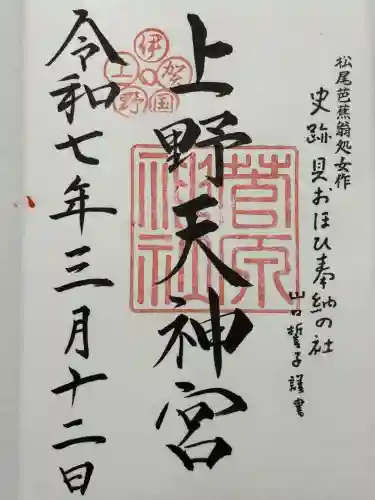 松尾芭蕉翁処女作
史跡 貝おほひ奉納の社
山口誓子謹書
上野天神宮
菅原神社
伊賀国上野
令和七年三月十二日